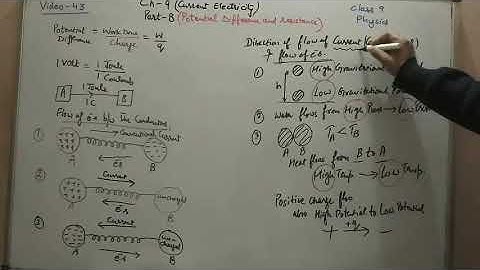 Video-43
Ch-9 (Current Electricity)
Part-B (Potential Difference and Resistance)
Class 9
Physics
Potential Difference = Work Done / Charge = W / q
1 Volt = 1 Joule / 1 Coulomb
A 1 Joule / 1C B
Flow of e-s b/w Two Conductors
1
Conventional Current
A e-s B
2
Current
A e-s uncharged B
3
Current
A e-s Un-charged B
Direction of flow of Current
& flow of e-s.
1 High Gravitational
h
Low Gravitational
2 Water flows from High Press → Low
3 A B TA < TB
Heat flows from B to A
High Temp → Low Temp
Positive Charge flow
also High Potential to Low Potential
+ +q → -